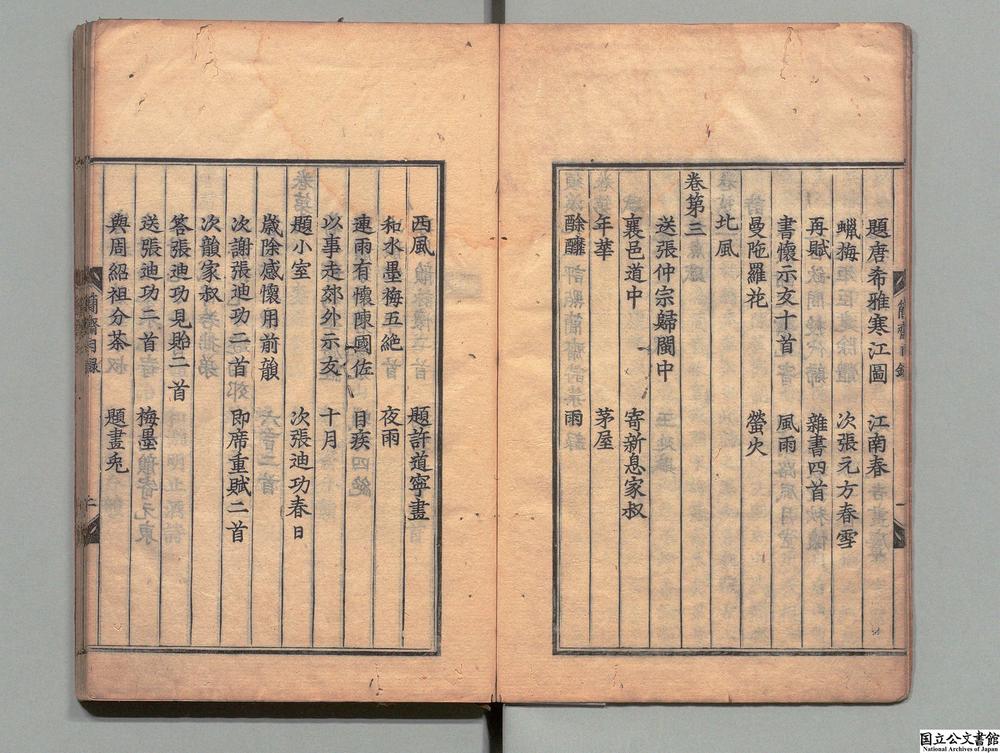 題唐希雅寒江圖　江南春
蠟梅　次張元方春雪
再賦　雜書四首
書懷示友十首　風雨
曼陁羅花　螢火
北風
卷第三
送張仲宗歸閩中
襄邑道中　寄新息家叔
年華　茅屋
酴醾　雨
西風　題許道寧畫
和水墨梅五絶　夜雨
連雨有懷陳國佐　目疾
以事走郊外示友　十月
題小室　次張迪功春日
歲除感懷用前韻
次謝張迪功二首　即席重賦二首
次韻家叔
答張迪功見貽二首
送張迪功二首　梅墨
與周紹祖分茶　題畫兎
簡齋目錄
国立公文書館
National Archives of Japan